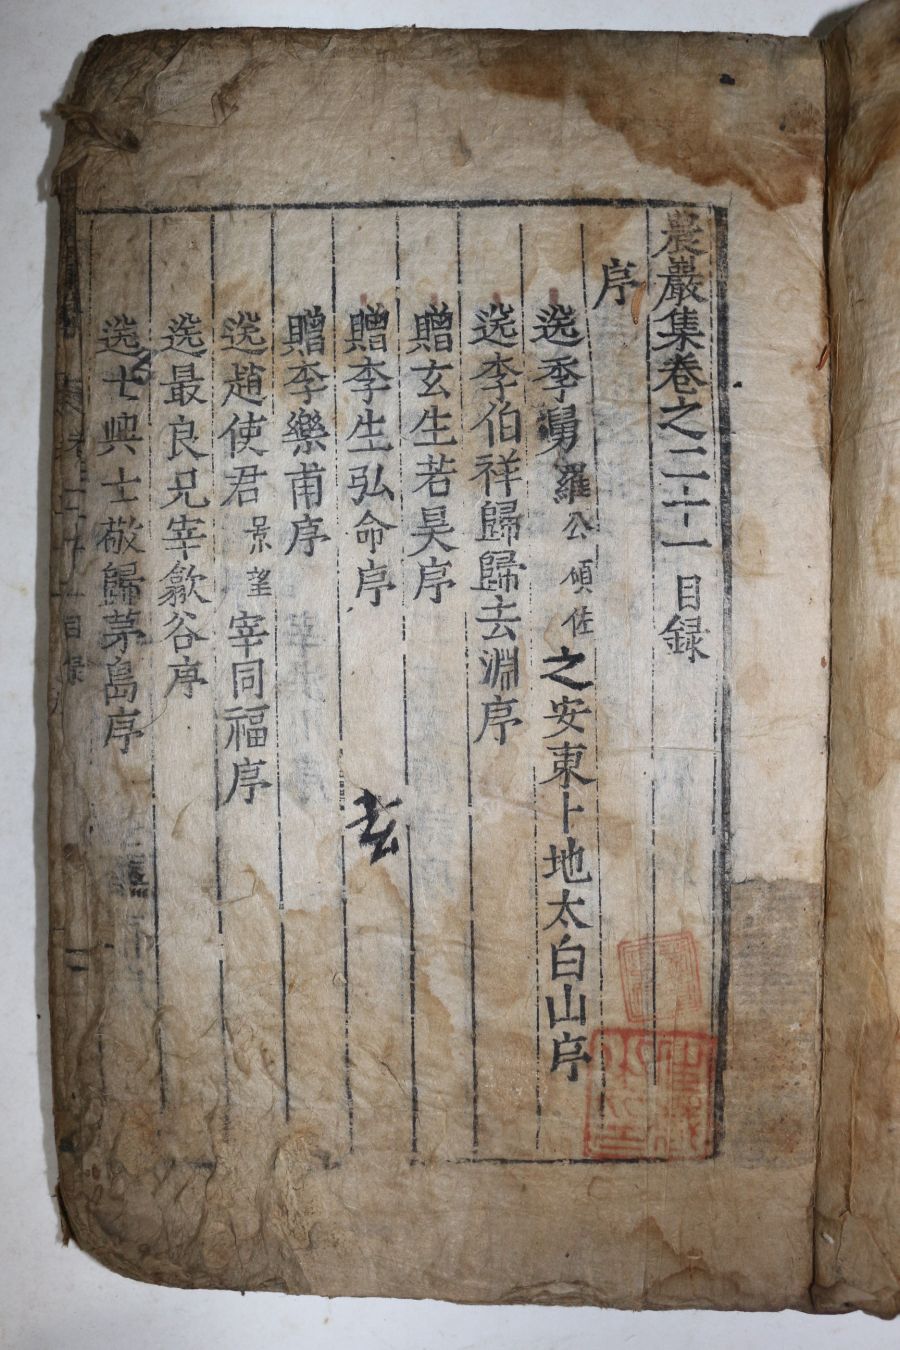 農巖集卷之二十一 目錄
序
送季舅羅公碩佐之安東卜地太白山序
送李伯祥歸歸去淵序
贈玄生若昊序
贈李生弘命序
贈李樂甫序
送趙使君景望宰同福序
送最良兄宰歙谷序
送士興士敬歸茅島序